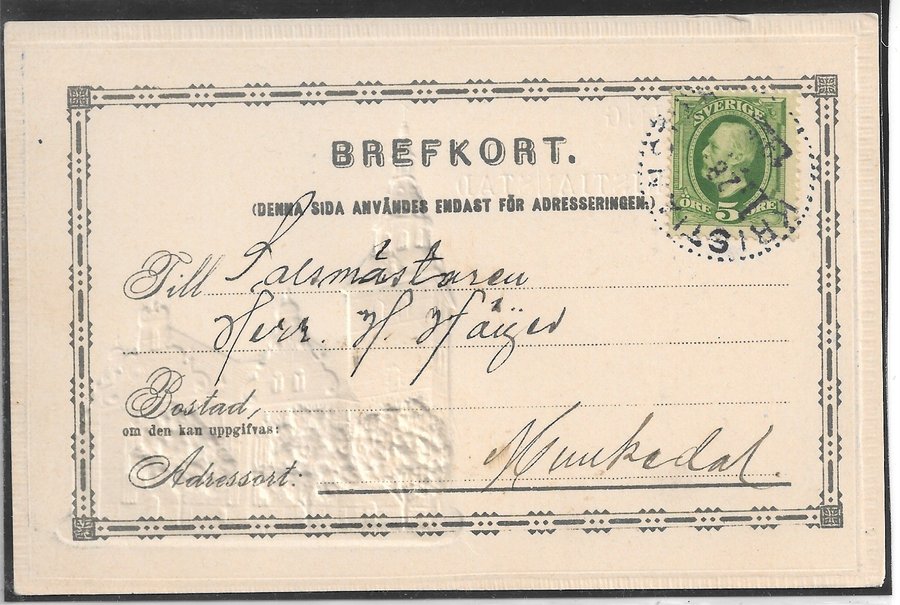 BREFKORT.
(DENNA SIDA ANVÄNDES ENDAST FÖR ADRESSERINGEN.)
SVERIGE
ÖRE 5 ÖRE
KRISTI
Till
Herr. H.
Bostad,
om den kan uppgifvas:
Adressort. Munkedal.